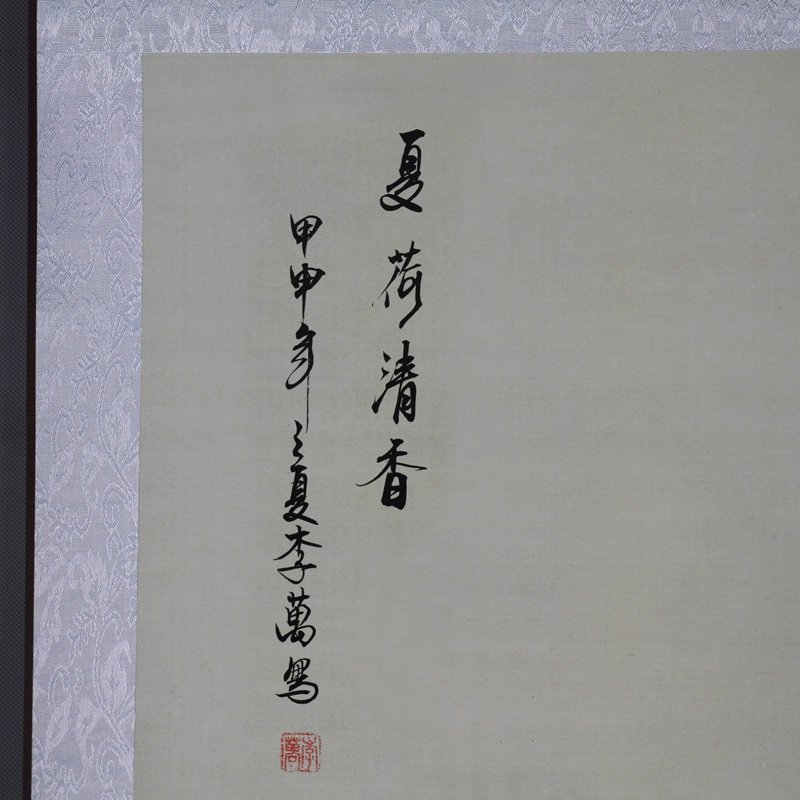 夏荷清香
甲申年之夏李萬寫
李萬